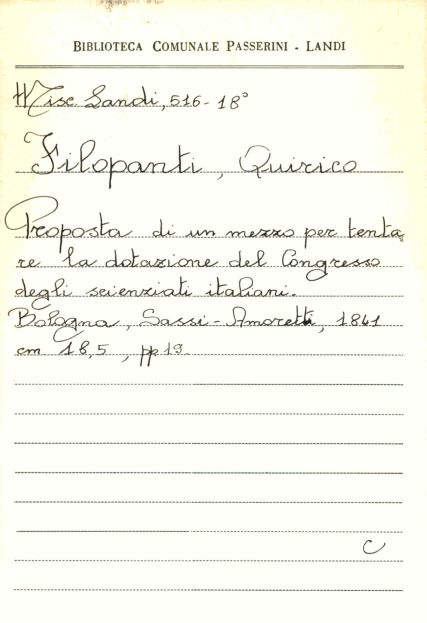 BIBLIOTECA COMUNALE PASSERINI - LANDI
Misc. Landi, 516 - 18°
Filopanti, Quirico
Proposta di un mezzo per tenta
re la dotazione del Congresso
degli scienziati italiani.
Bologna, Sassi-Amoretti, 1841
cm 18,5, pp 19.
C